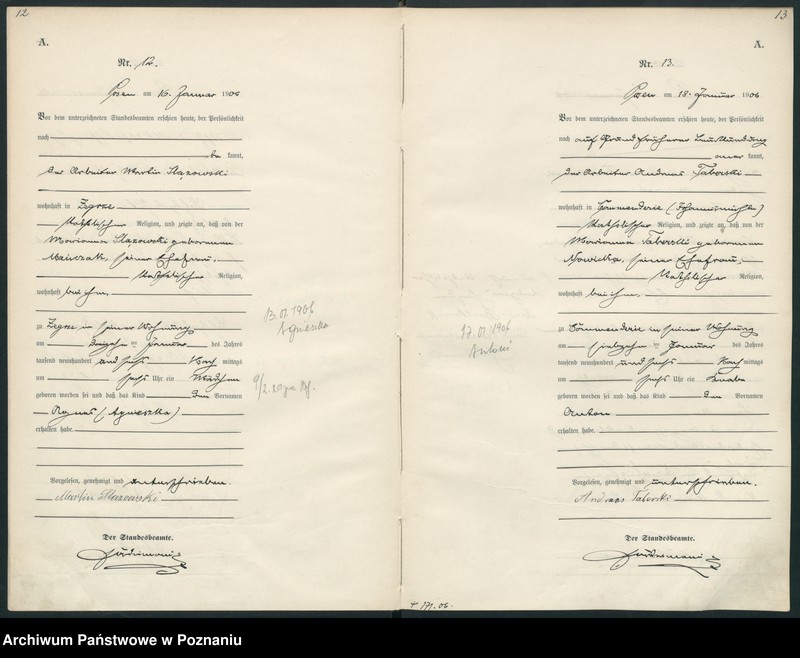 12
A.
Nr. 12.
Posen am 16. Januar 1906
Vor dem unterzeichneten Standesbeamten erschien heute, der Persönlichkeit
nach
be kannt,
der Arbeiter Martin
wohnhaft in Zegrze
katholischer Religion, und zeigte an, daß von der
Marianna geborenen
seiner Ehefrau,
katholischer Religion,
wohnhaft bei ihm,
zu Zegrze in seiner Wohnung
am Januar des Jahres
tausend neunhundert und sechs Nach mittags
um sechs Uhr ein Mädchen
geboren worden sei und daß das Kind den Vornamen
Agnes (Agnieszka)
erhalten habe.
Vorgelesen, genehmigt und unterschrieben.
Martin
Der Standesbeamte.
13.01.1906
Agnieszka
13
A.
Nr. 13.
Posen am 18. Januar 1906
Vor dem unterzeichneten Standesbeamten erschien heute, der Persönlichkeit
nach auf Grund früherer Beurkundung
aner kannt,
der Arbeiter Andreas Taberski
wohnhaft in Kommenderie (Johannismühle)
katholischer Religion, und zeigte an, daß von der
Marianna Taberski geborenen
Nowicka, seiner Ehefrau,
katholischer Religion,
wohnhaft bei ihm,
zu Kommenderie in seiner Wohnung
am siebzehn Januar des Jahres
tausend neunhundert und sechs Nach mittags
um sechs Uhr ein Knabe
geboren worden sei und daß das Kind den Vornamen
Anton
erhalten habe.
Vorgelesen, genehmigt und unterschrieben.
Andreas Taberski
Der Standesbeamte.
17.01.1906
Antoni
+ 171.06.
Archiwum Państwowe w Poznaniu